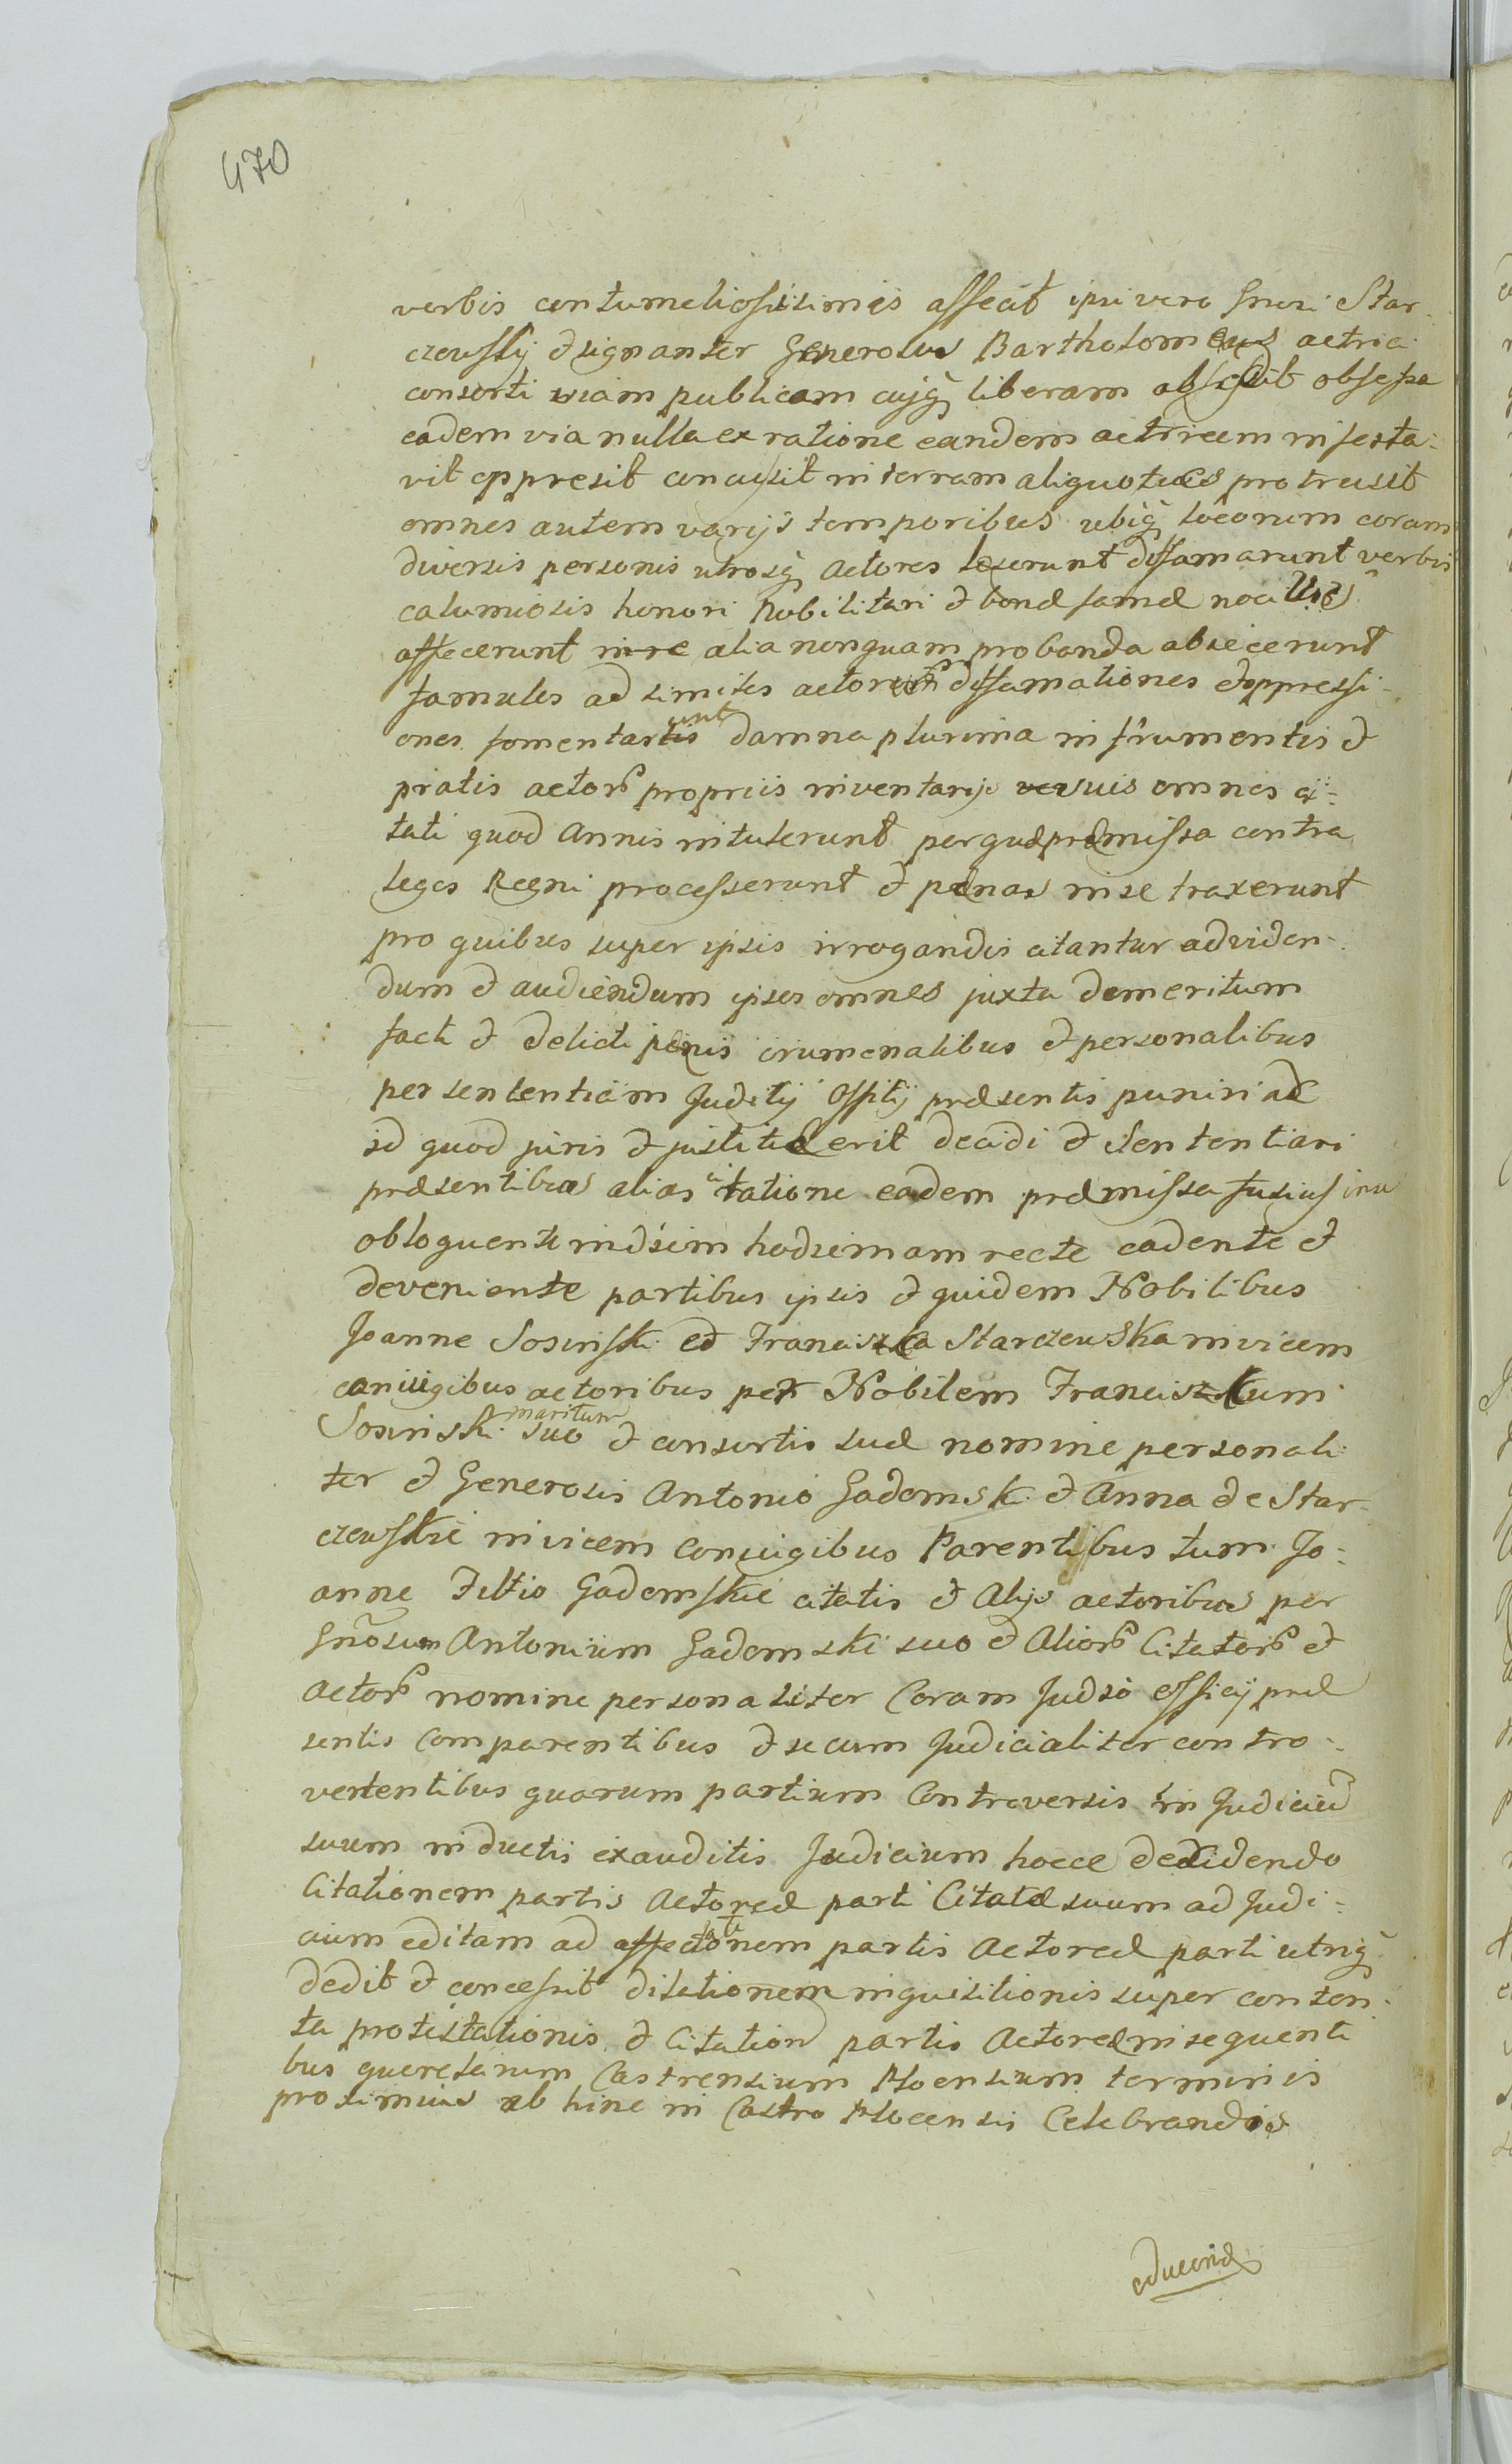 470
verbis contumeliosissimis affecit ipsi vero Gnosi Star
czewscÿ et signanter Generosus Bartholomeus actrici
consorti viam publicam cuiq liberam obsedit obsessa
eadem via nulla ex ratione eandem actricem infesta:
vit oppresit concusit in terram aliquoties protrusit
omnes autem varÿs temporibus ubiq locorum coram
diversis personis utrosq Actores leserunt disfamarunt verbis
calumiosis honori Nobilitari et bonæ famæ nocivis
affecerunt in re alia nonquam probanda abiecerunt
famulos ad similes actorum disfamationes et oppressi
ones fomentarunt damna plurima in frumentis et
pratis actor propriis inventarÿs suis omnes ci:
tati quod Annis intulerunt per quæ præmissa contra
leges Regni processerunt et pænas in se traxerunt
pro quibus super ipsis irrogandis citantur ad viden
dum et audiendum ipsos omnes juxta demeritum
facti et delicti pænis crumenalibus et personalibus
per sententiam Juditÿ Offitÿ præsentis puniri ac
id quod juris et justitiæ erit decidi et Sententiari
præsentibus alias citatione eadem præmissa fusius in se
obloquente in diem hodiernam recte cadente et
deveniente partibus ipsis et quidem Nobilibus
Joanne Sosinski et Franciszka Starczewska invicem
coniugibus actoribus per Nobilem Franciszkum
Sosinski maritum suo et consortis suæ nomine personali
ter et Generosis Antonio Gadomski et Anna de Star
czewskie invicem Coniugibus Parentibus tum Jo:
anne Filio Gadomskie citatis et Alÿs actoribus per
Gnosum Antonium Gadomski suo et Alior Citator et
Actor nomine personaliter Coram Judio officÿ præ
sentis Comparentibus et secum Judicialiter contro:
vertentibus quarum partium Controversis in Judiciu
suum inductis exauditis Judicium hocce decidendo
Citationem partis Actoreæ parti Citatæ suum ad Judi:
cium editam ad affectationem partis Actoreæ parti utriq
dedit et concessit dilationem inquisitionis super conten
ta protestationis et Citation partis Actoreæ in sequenti
bus querelarum Castrensium Plocensium terminis
proximius ab hinc in Castro Plocensis Celebrandis